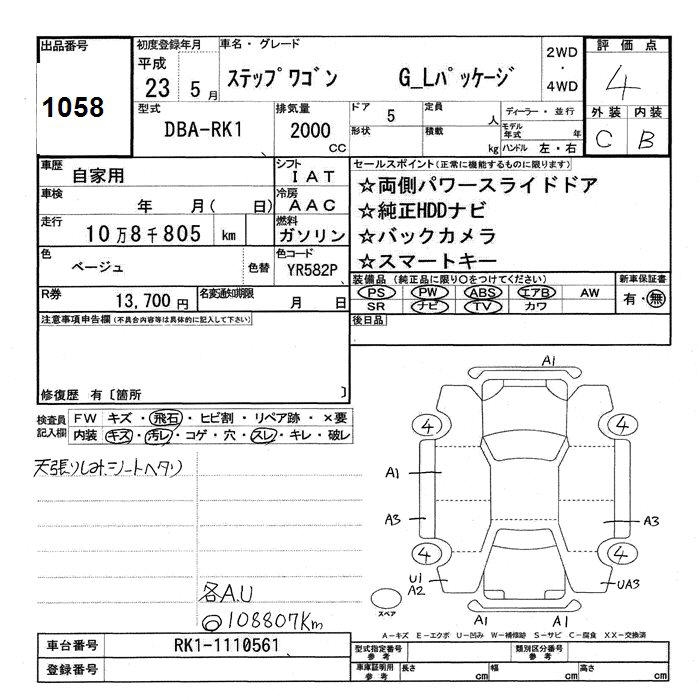 出品番号 初度登録年月 車名・グレード 2WD・4WD 評価点
1058 平成 23 5月 ステップワゴン G_Lパッケージ 4
型式 排気量 ドア 5 定員 人 ディーラー・並行 外装 内装
DBA-RK1 2000 CC 形状 積載 kg モデル年式 年 C B
ハンドル 左・右
車歴 自家用 シフト IAT セールスポイント(正常に機能するものに限ります)
車検 年 月( 日) 冷房 AAC ☆両側パワースライドドア
走行 10万8千805 km 燃料 ガソリン ☆純正HDDナビ
☆バックカメラ
色 ベージュ 色替 色コード YR582P ☆スマートキー
R券 13,700円 名変通知期限 月 日 装備品(純正品に限り○をつけてください) 新車保証書
PS PW ABS エアB AW 有・無
SR ナビ TV カワ
注意事項申告欄(不具合内容等は具体的に記入して下さい) 後日品
修復歴 有〔箇所 〕
検査員記入欄 FW キズ・飛石・ヒビ割・リペア跡・×要
内装 キズ・汚レ・コゲ・穴・スレ・キレ・破レ
天張りしみ、シートヘタリ
各A.U
◎108807Km
A1
4 4
A1
A3 A3
4 4
U1
A2 UA3
スペア A1 A1
A-キズ E-エクボ U-凹み W-補修跡 S-サビ C-腐食 XX-交換済
車台番号 RK1-1110561 型式指定番号 参考 類別区分番号 参考
登録番号 車庫証明用 参考 長さ cm 幅 cm 高さ cm